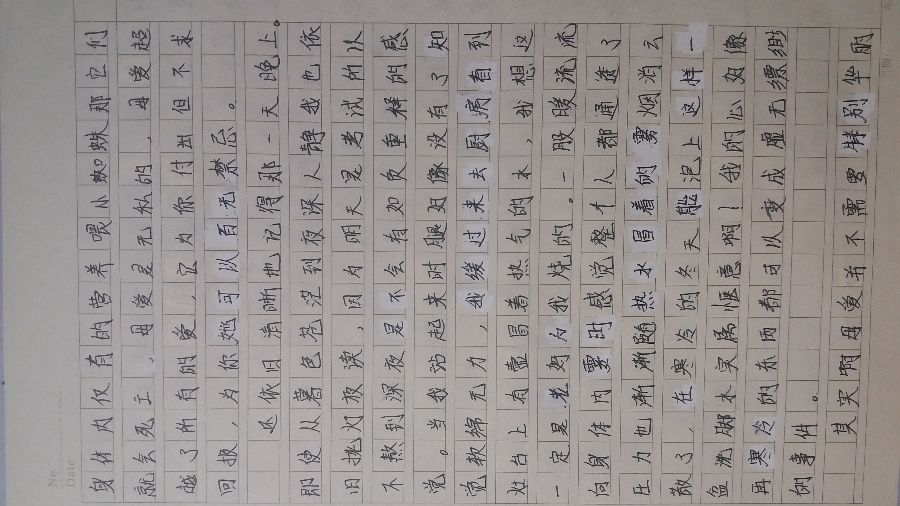 No
Date
身体内仅有的营养喂小蜘蛛那它们
就会死亡,母爱是无私的,母爱超
越了所有的爱,它为你付出但不求
回报,为你她可以百无禁忌。
还依旧清晰地记得那一天晚上。
即使从暮色苍茫到夜深人静我也依
旧挑灯夜读,因为明天是考试所以
不熬到深夜是不会有如负重释的感
觉。当我站起来时腿如像没有了知
觉软绵无力,我缓过来去厨房看到
灶台上有壶冒着热气的水,我想这
一定是老妈为我烧的。一股暖流流
向身体内霎时感觉整个人都通透了
压力也渐渐随热水冒着的雾烟消云
散了,在寒冷的冬天能泡上这样一
盆洗脚水实属惬意啊!我的心如像
再寒冷的东西都可以变成虚无缥缈
的事件。
其实啊母爱并不需要特别华丽